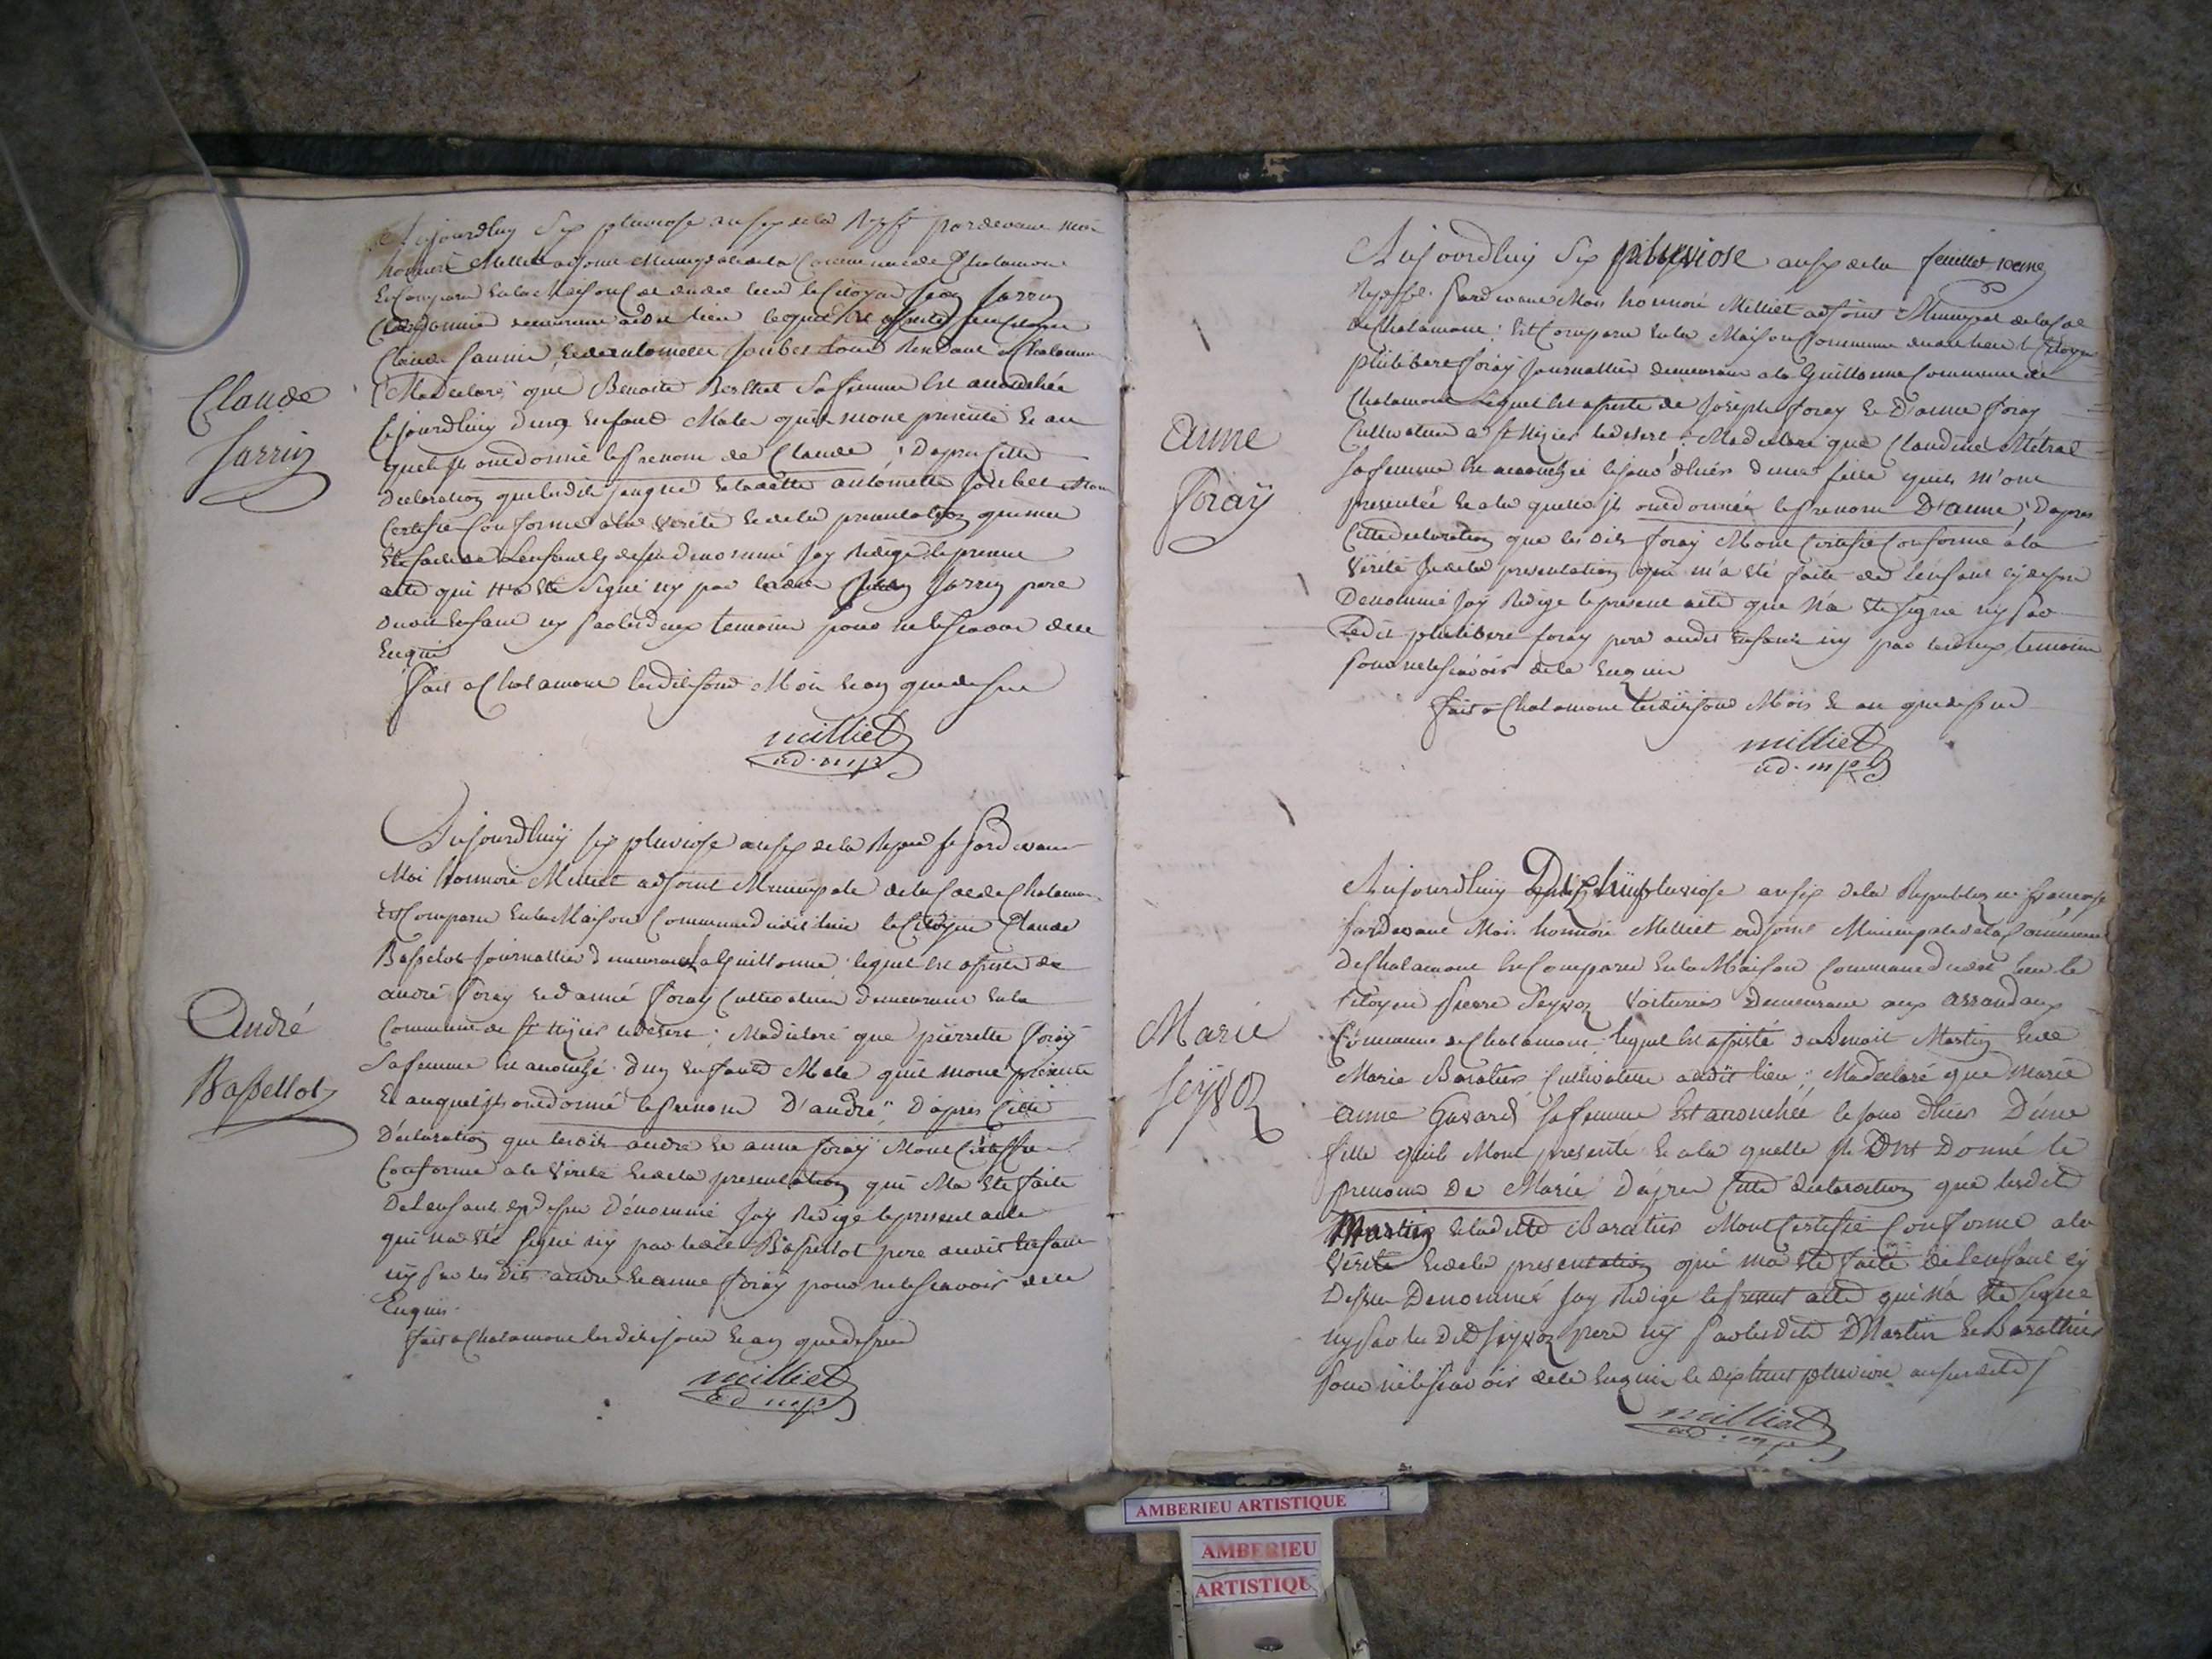 Claude
Jarrin
Aujourdhuy Six pluviose an six de la Repf pardevant moi
honnoré Milliet adjoint Municipale de la Commune de Chalamont
Est Comparu en la Maison Cne dudit lieu le Citoyen Jean Jarrin
demeurant audit lieu lequel Est assisté du Citoyen
Claude et de antoinette Joubet tout Residant a Chalamon
Madeclaré que Benoite Berthet Sa femme Est accouchée
cejourdhuy dung Enfant Male quils mont presenté Et au
quel ils ont donné le prenom de Claude ; Dapres Cette
Declaration que lesdits et ladette antoinette Joubet Mon
Certifié Conforme a la Verité Et de la presentation qui ma
Eté faite de Lenfant cy dessu Denommé Jay Redigé le present
acte qui na Eté Signé ny par ledit Jean Jarrin pere
dudit Enfant ny par les deux temoins pour ne le Scavoir de ce
Enquis
Fait a Chalamont les dits jour Mois Et an que dessu
milliet
ad. mp
André
Bassellot
Aujourdhuy six pluviose an six de la Repu f pardevant
Moi honnoré Milliet adjoint Municipale de la Cne de Chalamon
Est Comparu en la Maison Commune dudit lieu le Citoyen Claude
Basselot Journallier demeurant a la Guillonne lequel Est assisté de
andré foray Et d'anne foray Cultivateur demeurant en la
Commune de St Nizier le desert ; Madeclaré que pierrette foray
Sa femme Est accouché dun Enfant Male quil mont presenté
Et auquel ils ont donné le prenom D'andré ; D'apres Cette
Declaration que lesdits andré Et anne foray Mont Certiffié
Conforme a la Verité Et de la presentation qui Ma Eté faite
De Lenfant cy dessu Dénommé Jay Redigé le present acte
qui na Eté Signé ny par ledit Bassellot pere dudit Enfant
ny par les dits andré Et anne foray pour ne le Scavoir de ce
Enquis
fait a Chalamont les dits jour Et an que dessu
milliet
ad mp
anne
Foraÿ
Aujourdhuy Six pluviose an six de la feuillet 10eme
Repf. Pardevant Moi honnoré Milliet adjoint Municipal de la Cne
de Chalamont : Est Comparu en la Maison Commune dudit lieu le Citoyen
philibert foray Journallier demeurant a la Guillonne Commune de
Chalamont lequel Est assisté de Joseph foray Et D'anne foray
Cultivateur a St Nizier le desert ; Madeclaré que Claudine Métral
Sa femme Est accouchée le jour d'hier d'une fille quils m'ont
presentée Et a la quelle ils ont donnée le prenom D'anne ; D'apres
Cette declaration que les dits foray Mont Certifié Conforme a la
Verité Et de la presentation qui m'a Eté faite de l'enfant cy dessu
Denommé Jay Redigé le present acte que n'a Eté Signé ny par
Ledit philibert foray pere audit Enfant ny par les deux temoins
pour ne le Scavoir de ce Enquis
fait a Chalamont les dits jour Mois Et an que dessu
milliet
ad. mp
Marie
Seÿvoz
Aujourdhuy Dixhuit pluviose an six de la Republique francaise
pardevant Moi honnoré Milliet adjoint Municipale de la Commune
de Chalamont Est Comparu en la Maison Commune dudit lieu le
Citoyen pierre Seyvoz Voiturier Demeurant aux assandaux
Commune de Chalamont lequel Est assisté de Benoit Martin Et de
Marie Baratier Cultivateur audit lieu ; Madeclaré que Marie
anne Gavard Sa femme Est accouchée le jour dhier D'une
fille quils Mont presenté Et a la quelle ils Ont Donné le
prenom De Marie D'apres Cette declaration que lesdits
Martin Et ladette Baratier Mont Certifié Conforme a la
Verité Et de la presentation qui ma Eté faite de Lenfant cy
Dessu Denommé Jay Redigé le present acte qui n'a Eté Signé
ny par les Dit Seyvoz pere ny par lesdits Martin Et Barathier
pour ne le Scavoir de ce Enquis le dixhuit pluviose an susdits
milliet
ad. mp
AMBERIEU ARTISTIQUE
AMBERIEU
ARTISTIQUE